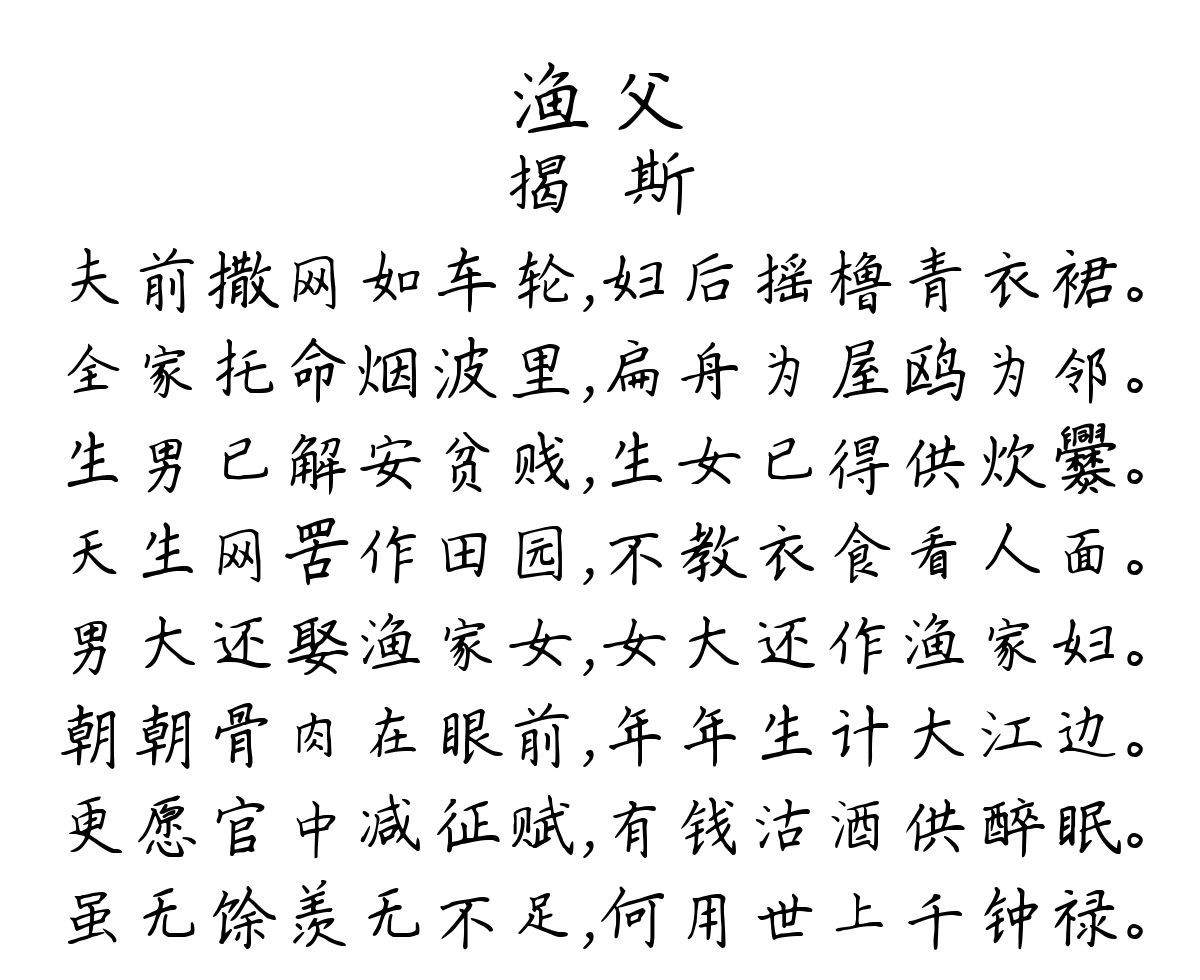 渔父
揭 斯
夫前撒网如车轮,妇后摇橹青衣裙。
全家托命烟波里,扁舟为屋鸥为邻。
生男已解安贫贱,生女已得供炊爨。
天生网罟作田园,不教衣食看人面。
男大还娶渔家女,女大还作渔家妇。
朝朝骨肉在眼前,年年生计大江边。
更愿官中减征赋,有钱沽酒供醉眠。
虽无馀羡无不足,何用世上千钟禄。